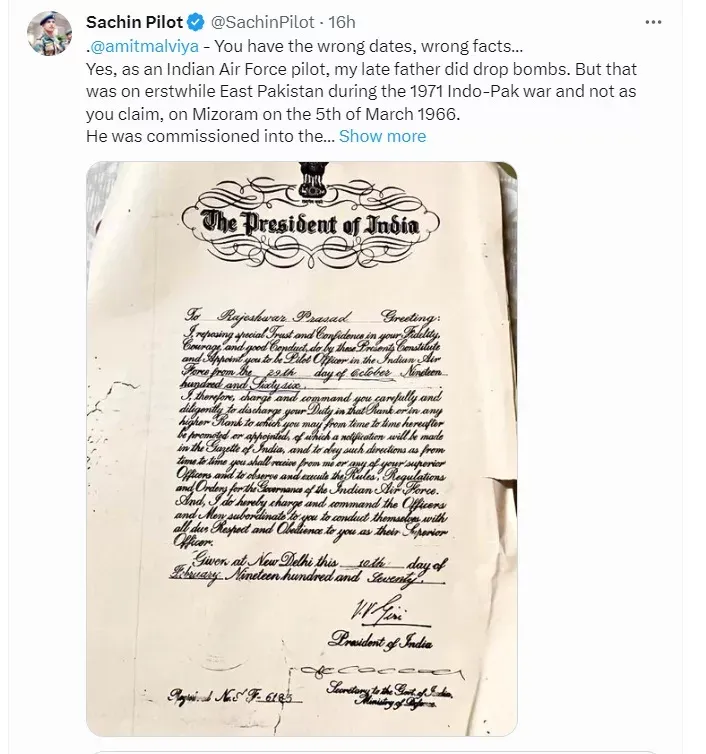 Sachin Pilot @SachinPilot · 16h
.@amitmalviya - You have the wrong dates, wrong facts...
Yes, as an Indian Air Force pilot, my late father did drop bombs. But that
was on erstwhile East Pakistan during the 1971 Indo-Pak war and not as
you claim, on Mizoram on the 5th of March 1966.
He was commissioned into the... Show more
The President of India
To Rajeshwar Prasad Greeting:
I, reposing special Trust and Confidence in your Fidelity,
Courage, and good Conduct, do by these Presents Constitute
and Appoint you to be Pilot Officer in the Indian Air
Force from the 29th day of October Nineteen
hundred and Sixtysix.
I, therefore, charge and command you carefully and
diligently to discharge your Duty in that Rank or in any
higher Rank to which you may from time to time hereafter
be promoted or appointed, of which a notification will be made
in the Gazette of India, and to obey such directions as from
time to time you shall receive from me or any of your superior
Officers and to observe and execute the Rules, Regulations
and Orders for the Governance of the Indian Air Force.
And, I do hereby charge and command the Officers
and Men subordinate to you to conduct themselves with
all due Respect and Obedience to you as their Superior
Officer.
Given at New Delhi this 10th day of
February Nineteen hundred and Seventy.
V.V. Giri
President of India
Secretary to the Govt. of India,
Ministry of Defence.